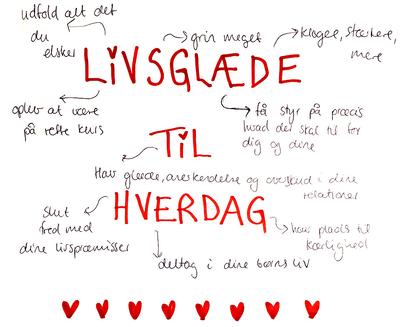 udfold alt det
du
elsker
grin meget
kisgee, stærkere,
mere
LIVSGLÆDE
oplev at være
på rette kurs
få styr på præcis
hvad der skal til for
dig og dine
TIL
Hav glæde, anerkendelse og overskud i dine
relationer
HVERDAG
slut
fred med
dine livspræmisser
hav plads til
kærlighed
deltag i dine børns liv